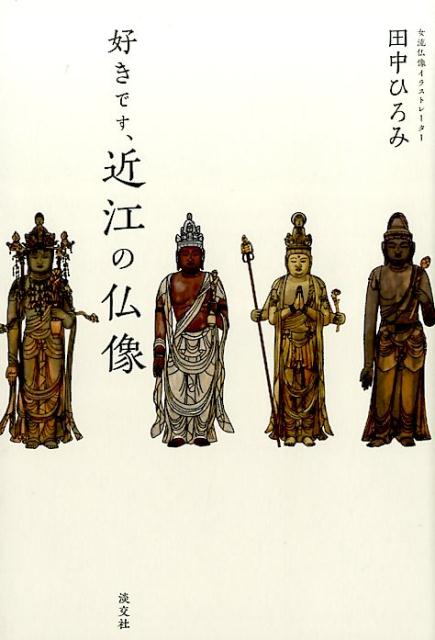 女流仏像イラストレーター
田中ひろみ
好きです、近江の仏像
淡交社